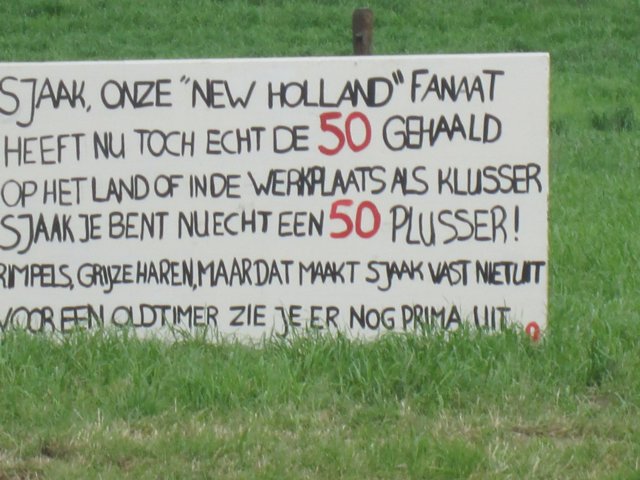 SJAAK, ONZE "NEW HOLLAND" FANAAT
HEEFT NU TOCH ECHT DE 50 GEHAALD
OP HET LAND OF IN DE WERKPLAATS ALS KLUSSER
SJAAK JE BENT NU ECHT EEN 50 PLUSSER!
RIMPELS, GRIJZE HAREN, MAAR DAT MAAKT SJAAK VAST NIET UIT
VOOR EEN OLDTIMER ZIE JE ER NOG PRIMA UIT